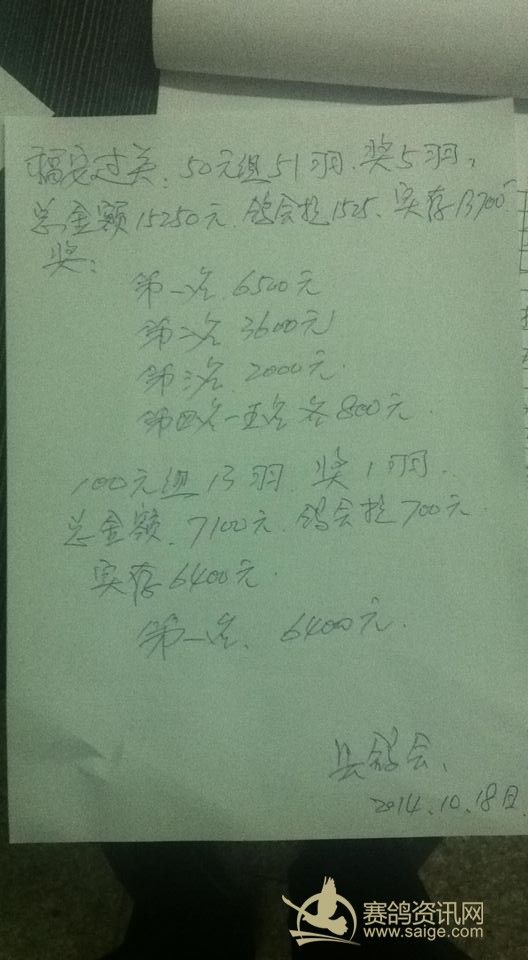 福安过关：50元组51羽.奖5羽，
总金额15250元.鸽会提1525.实存13700元
奖：
第一名.6500元
第二名 3600元
第三名.2000元.
第四名一五名各800元.
100元组13羽.奖1羽.
总金额.7100元.鸽会提700元.
实存6400元.
第一名、6400元.
县鸽会、
2014.10.18日.
赛鸽资讯网
www.saige.com